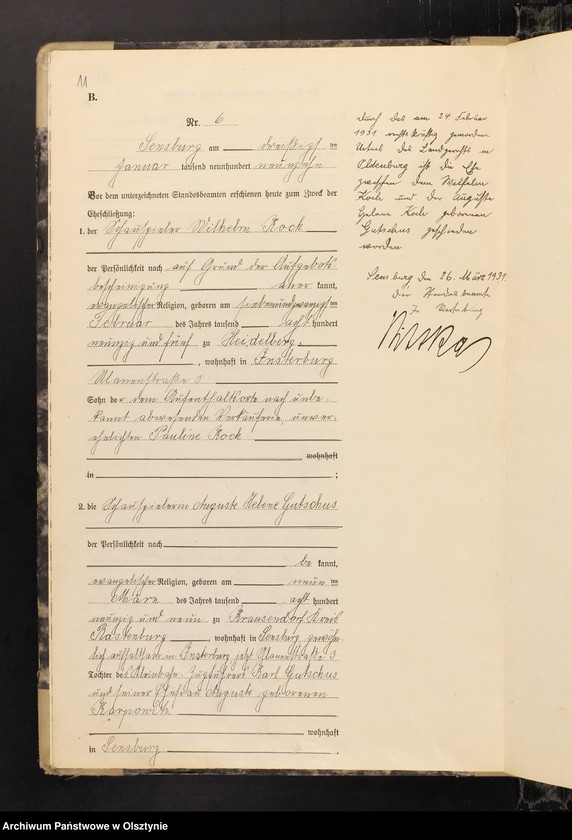 11
B.
Nr. 6
Sensburg am dreißigsten
Januar tausend neunhundert neunzehn
Vor dem unterzeichneten Standesbeamten erschienen heute zum Zweck der
Eheschließung:
1. der Schauspieler Wilhelm Kock
der Persönlichkeit nach auf Grund der Aufgebots
bescheinigung aner kannt,
evangelischer Religion, geboren am siebenundzwanzigsten
Februar des Jahres tausend acht hundert
neunzig und fünf zu Heidelberg
, wohnhaft in Insterburg
Ulanenstraße 3
Sohn der dem Aufenthaltsorte nach unbe-
kannt abwesenden Verkäuferin, unver-
ehelichten Pauline Kock
wohnhaft
in ;
2. die Schauspielerin Auguste Helene Gutschus
der Persönlichkeit nach
be kannt,
evangelischer Religion, geboren am neun ten
März des Jahres tausend acht hundert
neunzig und neun zu Krausendorf Kreis
Rastenburg, wohnhaft in Sensburg gewöhn-
lich aufhaltsam in Insterburg jetzt Ulanenstraße 3
Tochter des Kleinbahn-Zugführers Karl Gutschus
und seiner Ehefrau Auguste geborenen
Karpowitz
wohnhaft
in Sensburg
Durch das am 24 Februar
1931 rechtskräftig gewordene
Urteil des Landgerichts in
Oldenburg ist die Ehe
zwischen dem Wilhelm
Kock und der Auguste
Helene Kock geborenen
Gutschus geschieden
worden.
Sensburg den 26. März 1931.
Der Standesbeamte
In Vertretung
Archiwum Państwowe w Olsztynie